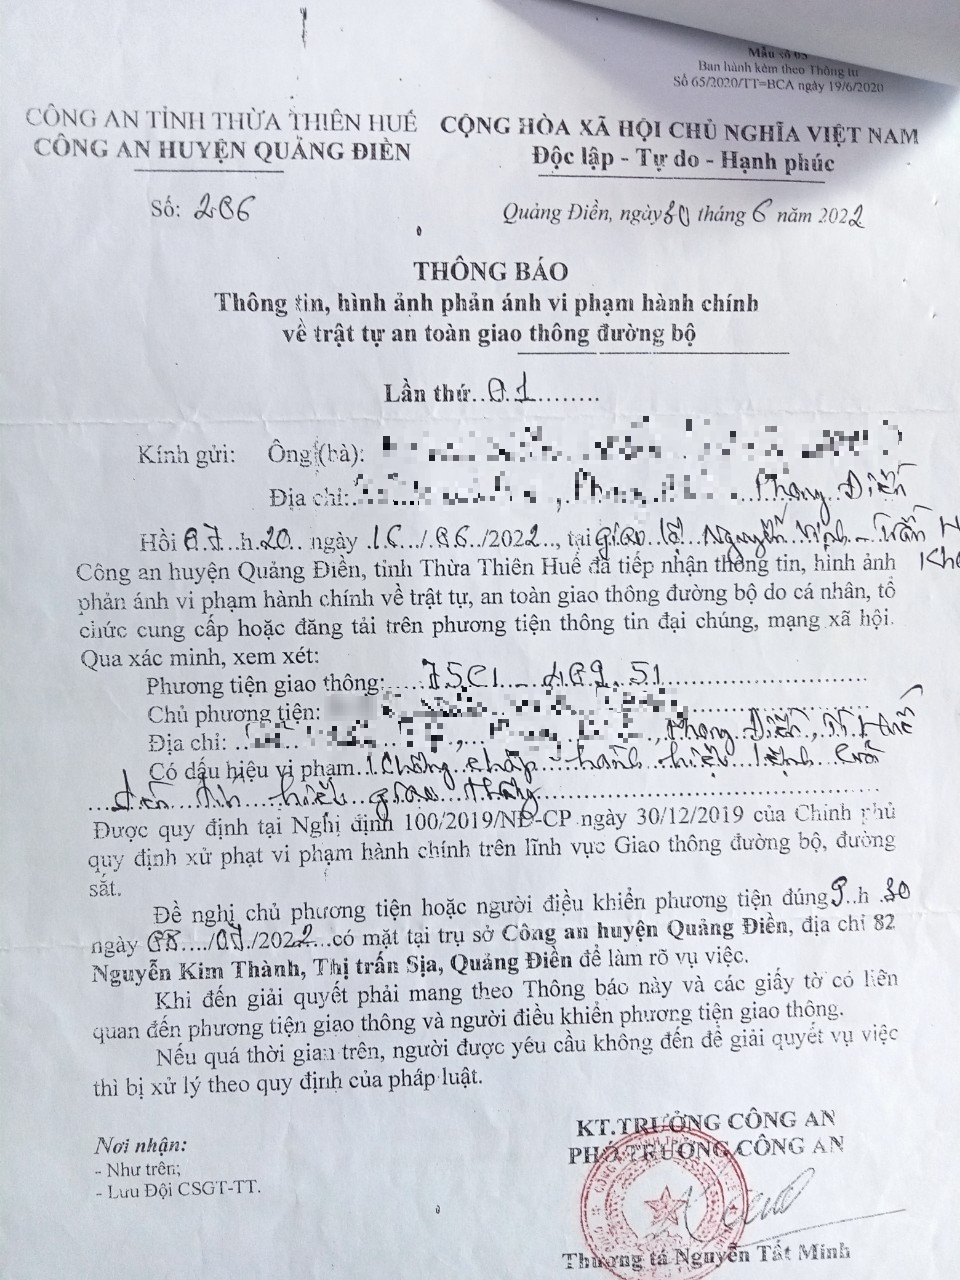 Mẫu số 03
Ban hành kèm theo Thông tư
Số 65/2020/TT=BCA ngày 19/6/2020
CÔNG AN TỈNH THỪA THIÊN HUẾ
CÔNG AN HUYỆN QUẢNG ĐIỀN
CỘNG HÒA XÃ HỘI CHỦ NGHĨA VIỆT NAM
Độc lập - Tự do - Hạnh phúc
Số: 286
Quảng Điền, ngày 30 tháng 6 năm 2022
THÔNG BÁO
Thông tin, hình ảnh phản ánh vi phạm hành chính
về trật tự an toàn giao thông đường bộ
Lần thứ..01........
Kính gửi: Ông (bà):
Địa chỉ: , Phong Điền
Hồi 07..h.20.. ngày .16../.06../2022.., tại giao lộ Nguyễn Vịnh - Trần
Công an huyện Quảng Điền, tỉnh Thừa Thiên Huế đã tiếp nhận thông tin, hình ảnh
phản ánh vi phạm hành chính về trật tự, an toàn giao thông đường bộ do cá nhân, tổ
chức cung cấp hoặc đăng tải trên phương tiện thông tin đại chúng, mạng xã hội.
Qua xác minh, xem xét:
Phương tiện giao thông:.....75C1 - 169.51
Chủ phương tiện:
Địa chỉ: , Phong Điền, TT Huế
Có dấu hiệu vi phạm: Không chấp hành hiệu lệnh của
đèn tín hiệu giao thông
Được quy định tại Nghị định 100/2019/NĐ-CP ngày 30/12/2019 của Chính phủ
quy định xử phạt vi phạm hành chính trên lĩnh vực Giao thông đường bộ, đường
sắt.
Đề nghị chủ phương tiện hoặc người điều khiển phương tiện đúng 9..h 30
ngày 08..../07./2022...có mặt tại trụ sở Công an huyện Quảng Điền, địa chỉ 82
Nguyễn Kim Thành, Thị trấn Sịa, Quảng Điền để làm rõ vụ việc.
Khi đến giải quyết phải mang theo Thông báo này và các giấy tờ có liên
quan đến phương tiện giao thông và người điều khiển phương tiện giao thông.
Nếu quá thời gian trên, người được yêu cầu không đến để giải quyết vụ việc
thì bị xử lý theo quy định của pháp luật.
Nơi nhận:
- Như trên;
- Lưu Đội CSGT-TT.
KT.TRƯỞNG CÔNG AN
PHÓ TRƯỞNG CÔNG AN
Thượng tá Nguyễn Tất Minh